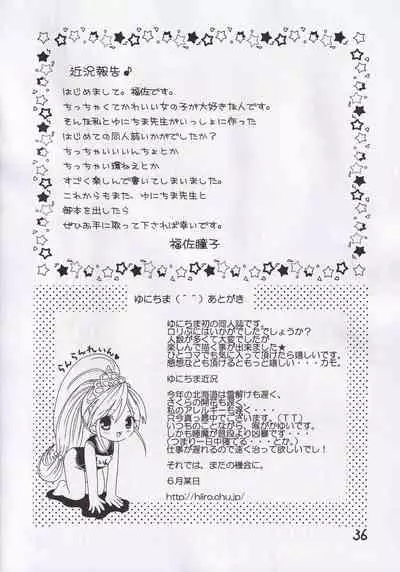 近況報告♪
はじめまして。福佐です。
ちっちゃくてかわいい女の子が大好きな人です。
そんな私とゆにちま先生がいっしょに作った
はじめての同人誌いかがでしたか？
ちっちゃいいいんちょとか
ちっちゃい環ねえとか
すごく楽しんで書いてしまいました。
これからもまた、ゆにちま先生と
御本を出したら
ぜひお手に取って下されば幸いです。
福佐瞳子
ゆにちま（＾＾）あとがき
らんらんれいん♥
ゆにちま初の同人誌です。
ロリぷにはいかがでしたでしょうか？
人数が多くて大変でしたが
楽しんで描く事が出来ました★
ひとコマでも気に入って頂けたら嬉しいです。
感想なども頂けるともっと嬉しい・・・カモ。
ゆにちま近況
今年の北海道は雪解けも遅く、
さくらの開花も遅く、
私のアレルギーも遅く・・・
ただ今真っ最中でございます。（ＴＴ）
いつものことながら、喉がかゆいです。
しかも睡魔が普段より凶暴です・・・
（つまり一日中寝てる・・・とか。）
仕事が遅れるので速く治って欲しいでし！
それでは、またの機会に。
６月某日
http://hiiro.chu.jp/
36